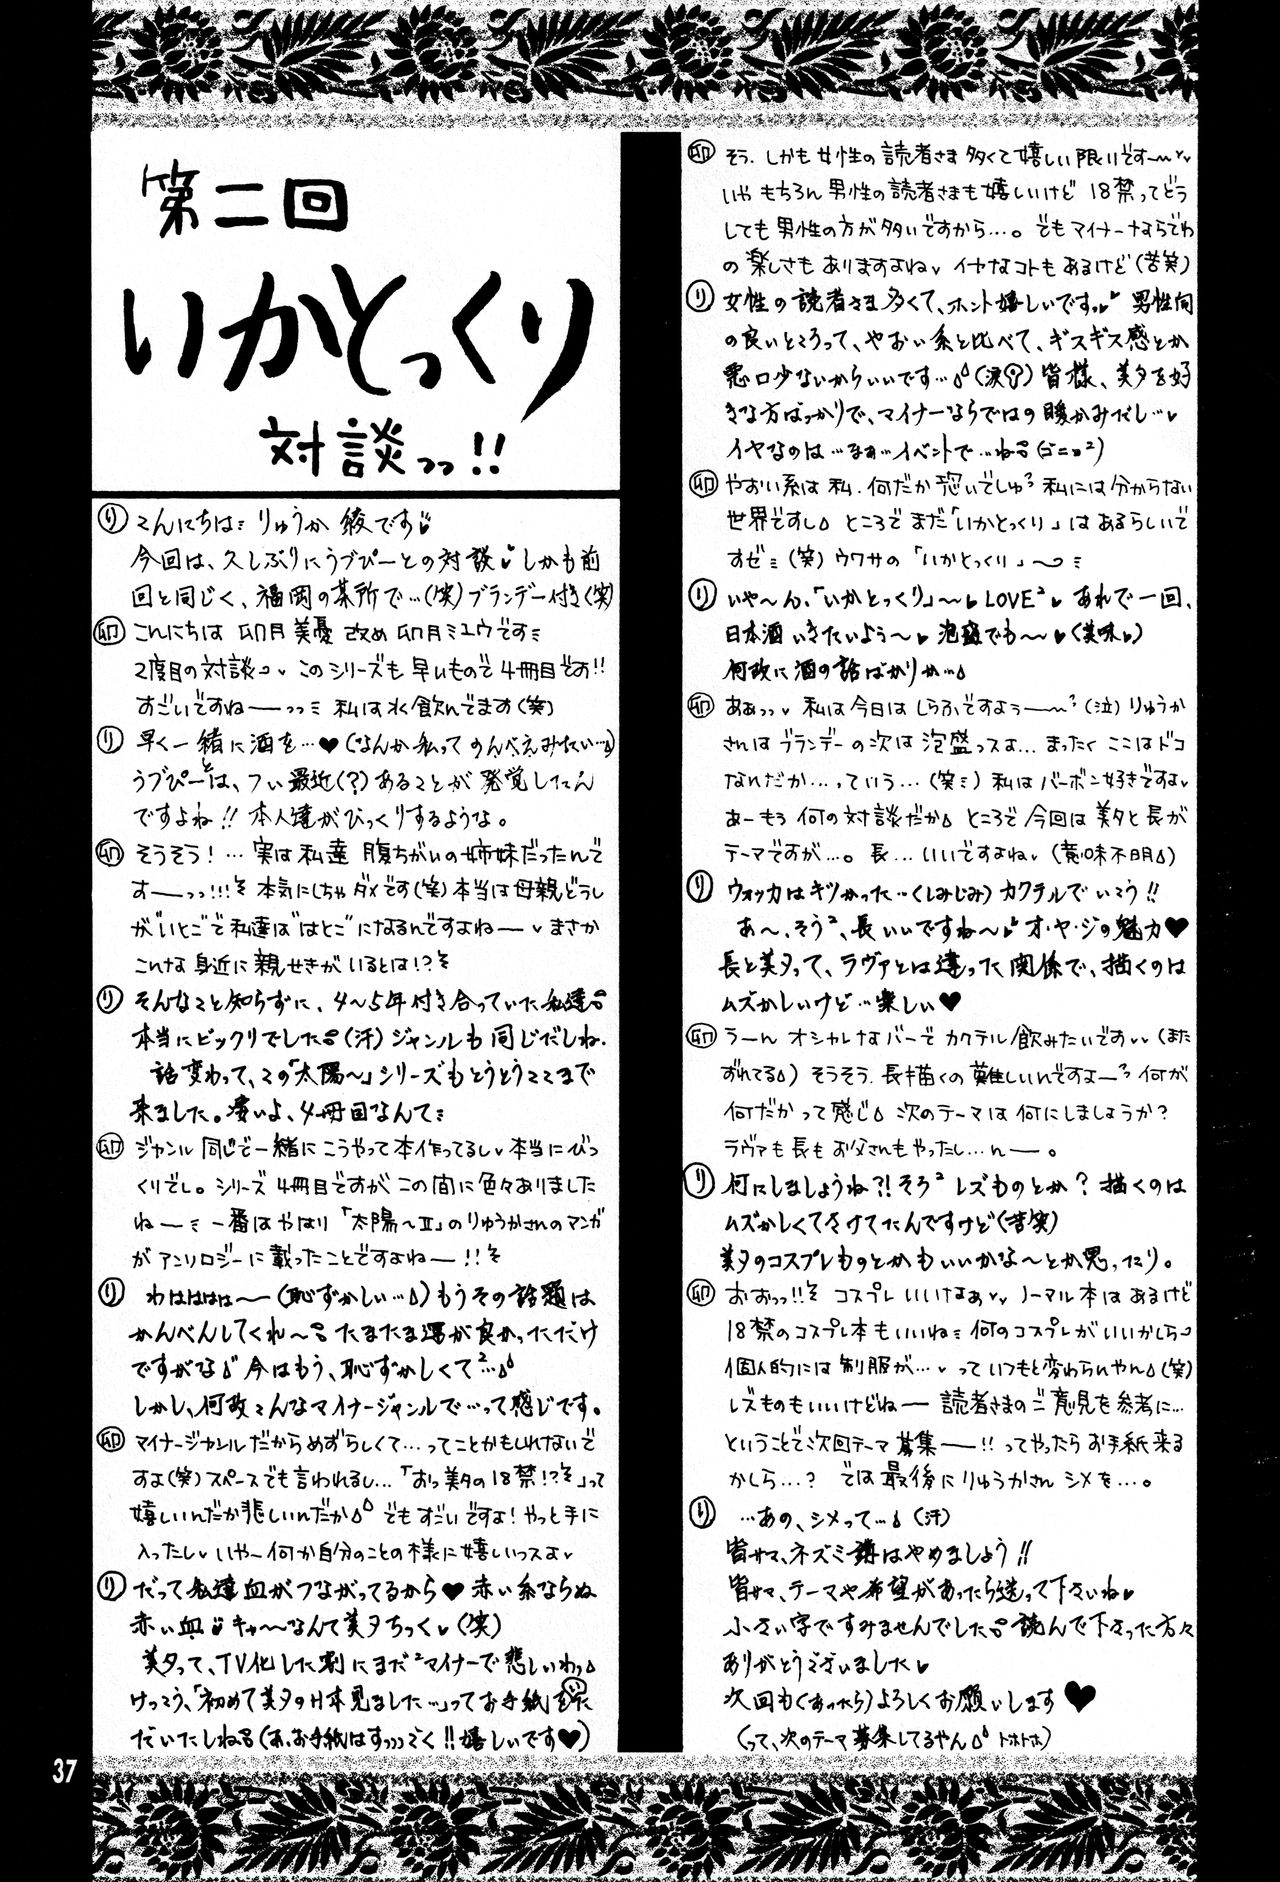 第二回
いかとっくり
対談っっ!!
り こんにちは りゅうか 綾です
今回は、久しぶりにうブぴーとの対談 しかも前
回と同じく、福岡の某所で…(笑)ブランデー付き(笑)
卯 こんにちは 卯月美憂 改め 卯月ミユウです
2度目の対談 このシリーズも 早いもので 4冊目です!!
すごいですねーっっ 私は水飲んでます(笑)
り 早く一緒に酒を…♥(なんか私ってのんべえみたい…)
うブぴーとは、つい最近(?)あることが発覚したん
ですよね!! 本人達がびっくりするような。
卯 そうそう! …実は私達 腹ちがいの姉妹だったんで
すーっっ!!! 本気にしちゃダメです(笑)本当は母親どうし
が"いとこ"で私達は"はとこ"になるんですよねー まさか
こんな身近に親せきがいるとは!?
り そんなこと知らずに、4〜5年付き合っていた私達
本当にビックリでした (汗)ジャンルも同じだしね.
話変わって、この「太陽〜」シリーズもとうとうここまで
来ました。凄いよ、4冊目なんて
卯 ジャンル同じで一緒にこうやって本作ってるし 本当にびっ
くりでし。シリーズ4冊目ですがこの間に色々ありました
ねー 一番はやはり「太陽〜II」のりゅうかさんのマンガ
がアンソロジーに載ったことですよねー!!
り わはははは〜(恥ずかしい…)もうその話題は
かんべんしてくれ〜 たまたま運が良かっただけ
ですがな 今はもう、恥ずかしくて²…
しかし、何故こんなマイナージャンルで…って感じです。
卯 マイナージャンルだからめずらしくて…ってことかもしれないで
すよ(笑)スペースでも言われるし…「おっ美夕の18禁!?」って
嬉しいんだか悲しいんだか でもすごいですよ! やっと手に
入ったし いやー何か自分のことの様に嬉しいっスよ
り だって私達血がつながってるから♥ 赤い糸ならぬ
赤い血 キャ〜なんて美夕ちっく (笑)
美夕って、TV化した割にまだ²マイナーで悲しいわっ
けっこう、「初めて美夕のH本見ました…」ってお手紙をいた
だいたしね (あ、お手紙はすっっっごく!!嬉しいです♥)
卯 そう.しかも女性の読者さま多くて嬉しい限りです〜
いや もちろん男性の読者さまも嬉しいけど 18禁ってどう
しても男性の方が多いですから…。でもマイナーならでわ
の楽しさもありますよね イヤなコトもあるけど(苦笑)
り 女性の読者さま多くて、ホント嬉しいです。 男性向
の良いところって、やおい系と比べて、ギスギス感とか
悪口少ないからいいです… (涙)皆様、美夕を好
きな方ばっかりで、マイナーならではの暖かみだし…
イヤなのは…まぁ…イベントで…ね (ゴニョ²)
卯 やおい系は私.何だか恐いでしゅ 私には分からない
世界ですし ところでまだ「いかとっくり」はあるらしいで
すぜ (笑)ウワサの「いかとっくり」〜
り いや〜ん、「いかとっくり」〜 LOVE² あれで一回、
日本酒いきたいよう〜 泡盛でも〜 (美味)
何故に酒の話ばかりか…
卯 あぁっっ 私は今日は しらふですよぅ〜(泣)りゅうか
さんはブランデーの次は泡盛っスよ… まったく ここはドコ
なんだか…っていう…(笑)私はバーボン好きですよ
あーもう何の対談だか ところで今回は美夕と長が
テーマですが…。長…いいですよね (意味不明)
り ウォッカはキツかった…(しみじみ)カクテルでいこう!!
あ〜、そう²、長いいですね〜 オ・ヤ・ジの魅力♥
長と美夕って、ラヴァとは違った関係で、描くのは
ムズかしいけど…楽しい♥
卯 うーん オシャレなバーで カクテル飲みたいです (また
ずれてる)そうそう.長描くの難しいんですよー 何が
何だかって感じ 次のテーマは何にしましょうか?
ラヴァも長もお父さんもやったし…んー。
り 何にしましょうね?! そろ² レズものとか? 描くのは
ムズかしくてさけてたんですけど(苦笑)
美夕のコスプレものとかもいいかな〜とか思ったり。
卯 おおっっ!! コスプレいいなぁ ノーマル本はあるけど
18禁のコスプレ本もいいね 何のコスプレがいいかしら
個人的には制服が… っていつもと変わらんやん(笑)
レズものもいいけどねー 読者さまのご意見を参考に…
ということで次回テーマ募集ー!! ってやったらお手紙来る
かしら…? では最後にりゅうかさん シメを…。
り …あの、シメって… (汗)
皆サマ、ネズミ講はやめましょう!!
皆サマ、テーマや希望があったら送って下さいね
小さい字ですみませんでした 読んで下さった方々
ありがとうございました
次回も(あったら)よろしくお願いします♥
(って、次のテーマ募集してるやん トホトホ)
37